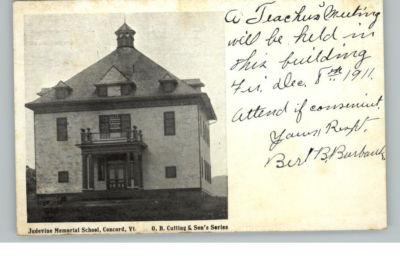 A Teachers' Meeting
will be held in
this building
Fri. Dec. 8th 1911.
Attend if convenient.
Yours Respt.
Bert B. Burbank
Judevine Memorial School, Concord, Vt. O. B. Cutting & Son's Series